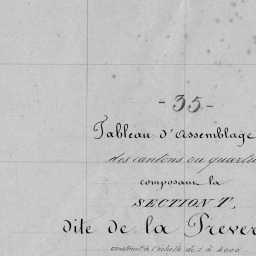 - 35 -
Tableau d'Assemblage
des cantons ou quarti
composant la
SECTION I,
dite de la Prever
construit à l'échelle de 1 à 4000